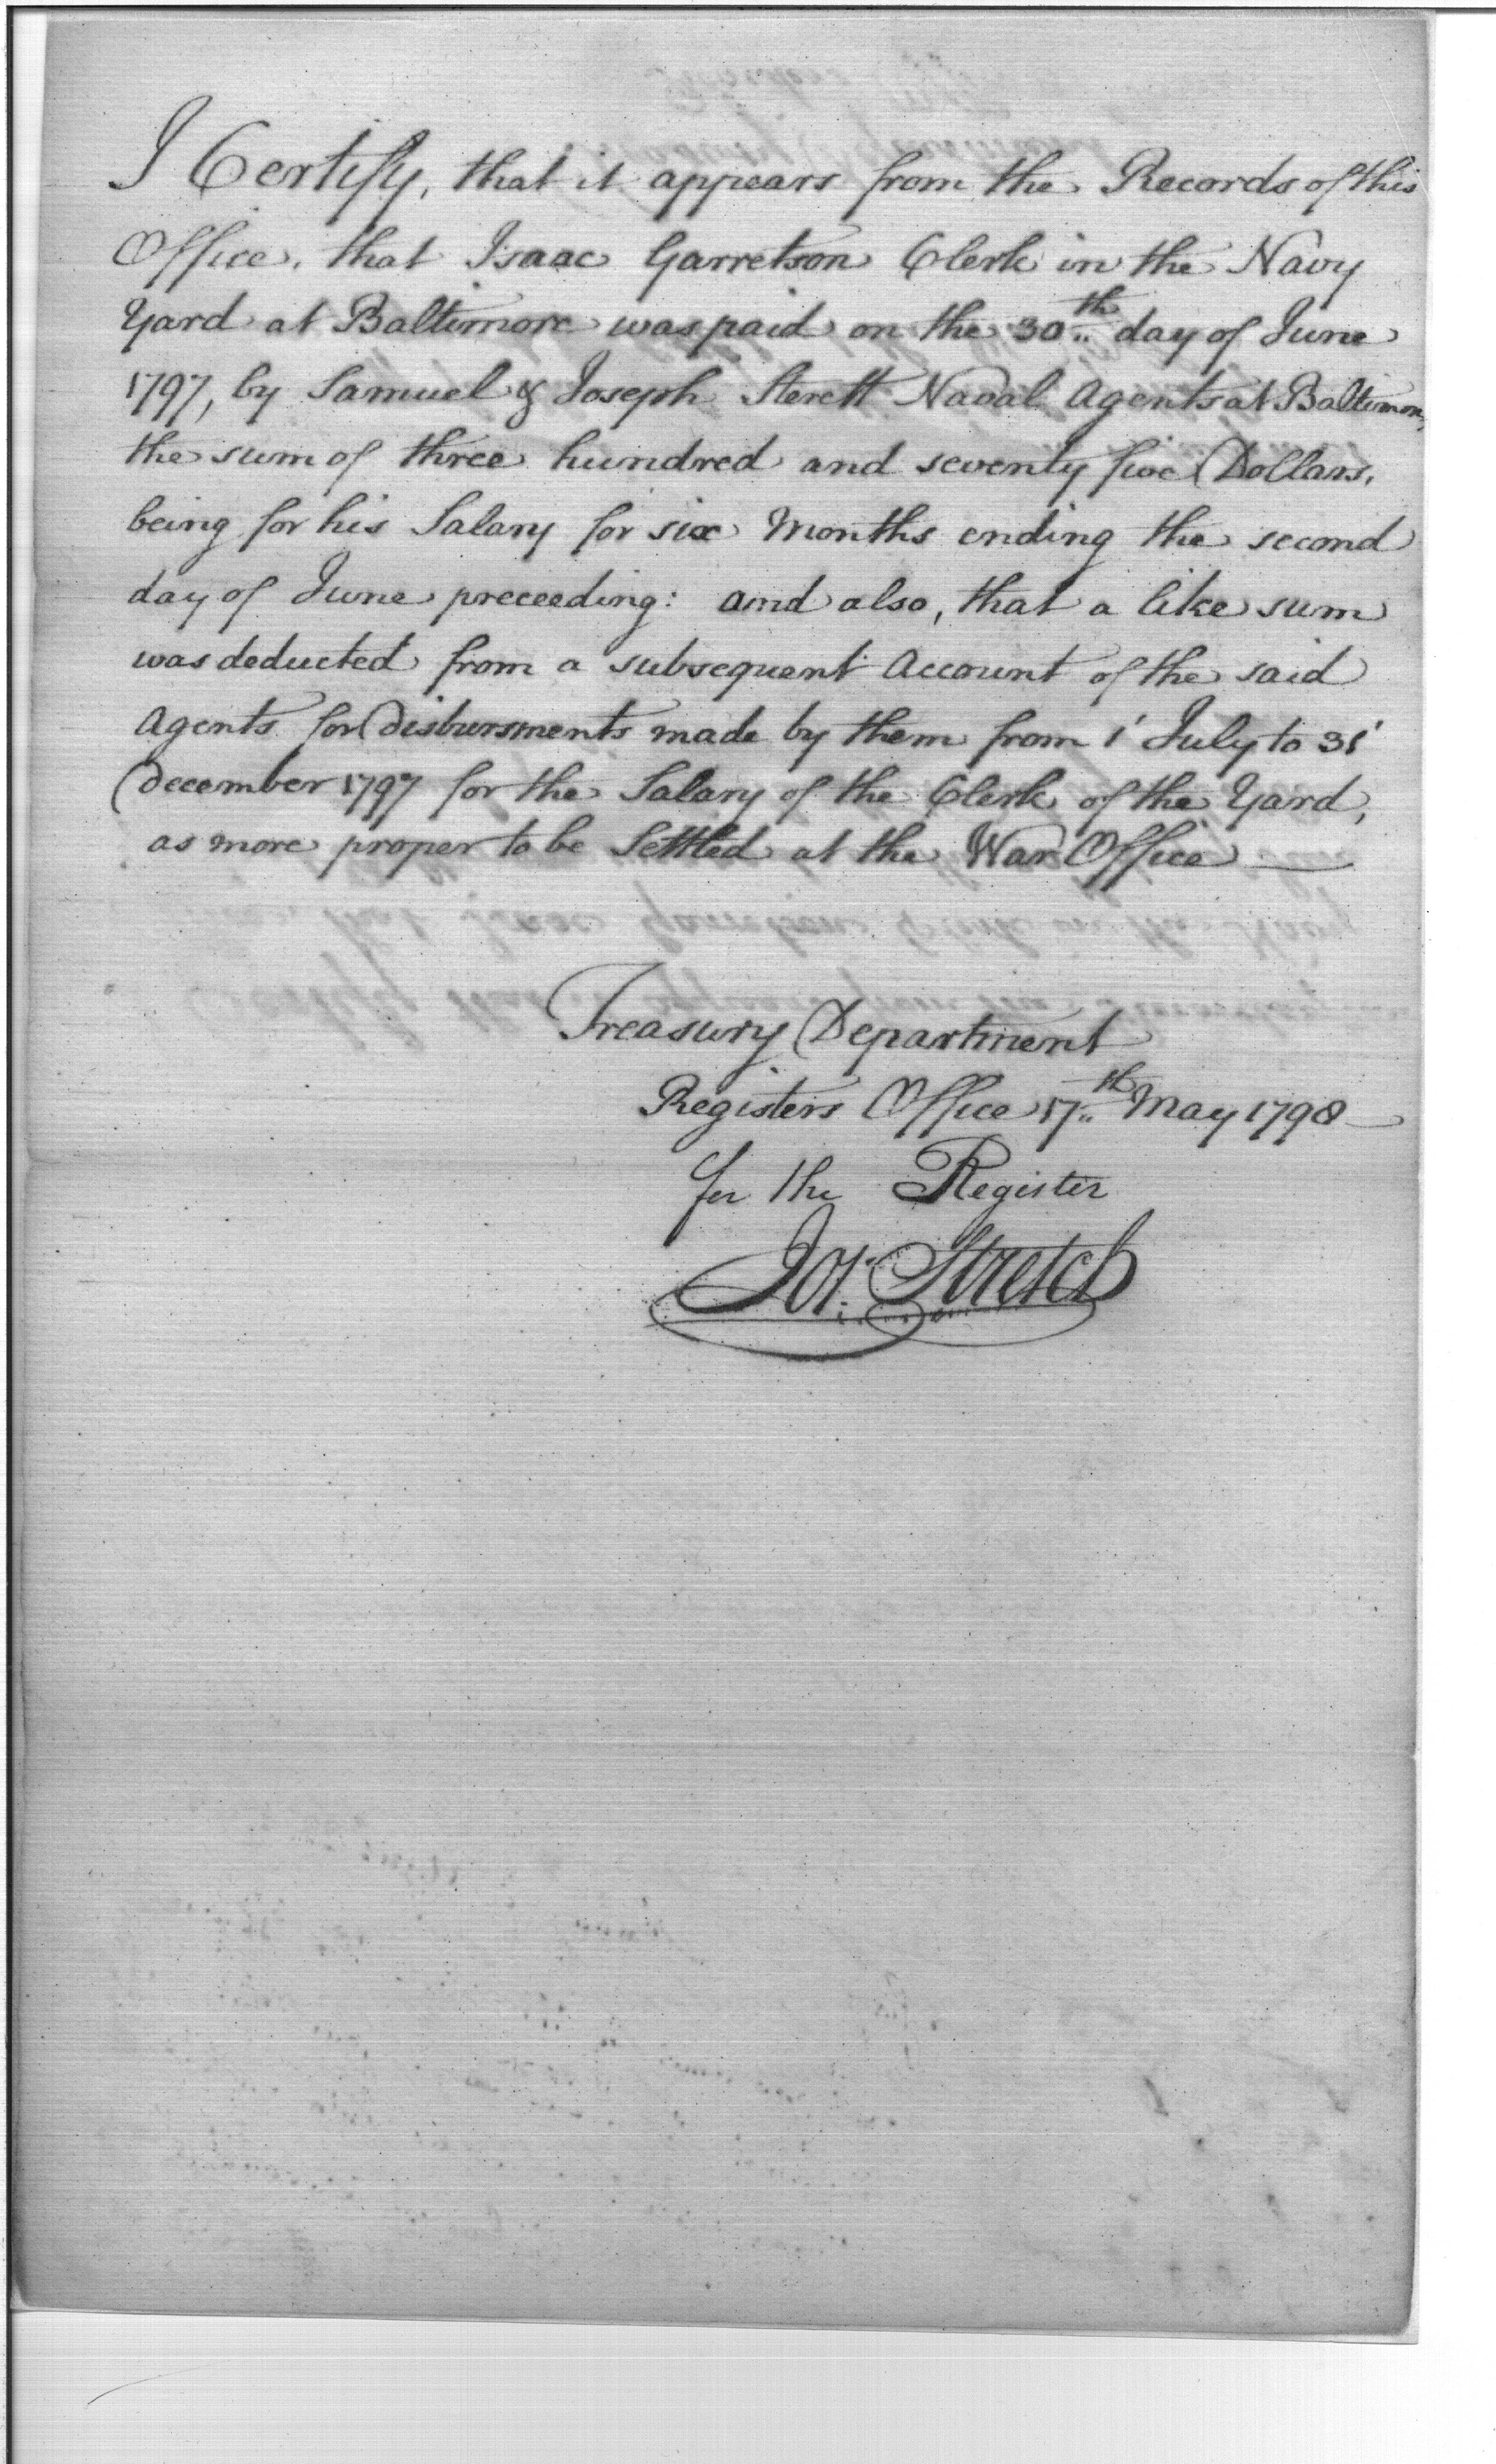 I Certify, that it appears from the Records of this
Office, that Isaac Garretson Clerk in the Navy
Yard at Baltimore was paid on the 30th day of June
1797, by Samuel & Joseph Sterett Naval Agents at Baltimore,
the sum of three hundred and seventy five Dollars,
being for his Salary for six Months ending the second
day of June preceeding: and also, that a like sum
was deducted from a subsequent Account of the said
Agents for disbursments made by them from 1 July to 31
December 1797 for the Salary of the Clerk of the Yard,
as more proper to be Settled at the War Office
Treasury Department
Registers Office 17th May 1798
for the Register
Jos: Stretch